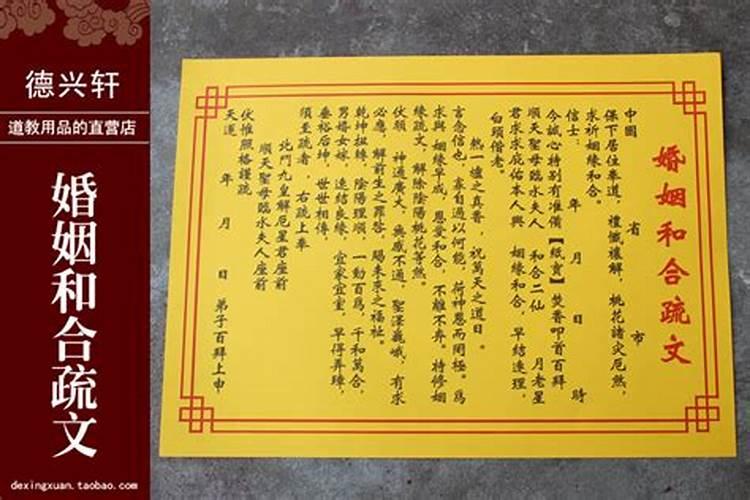 德兴轩
道教用品的直营店
婚姻和合疏文
dexingxuan.taobao.com
婚姻和合疏文
中國 省 市
保下居住奉道，禮懺禳解，桃花諸灾厄煞，
求祈姻緣和合。
信士： 年 月 日 時
今誠心特别有准備【紙寶】焚香叩首百拜
順天聖母臨水夫人 和合二仙 月老星
君求求庇佑本人與 姻緣和合，早結連理，
白頭偕老。
熱一爐之真香，祝萬天之道日。
言念信也，辜自過以何能，荷神恩而罔極。爲
求與 姻緣早成，恩愛和合，不離不弃。特修姻
緣疏文，解除陰陽桃花等煞。
伏願 神通廣大，無感不通，聖澤巍峨，有求
必應，解前生之罪咎，賜未來之福祉。
乾坤扭轉，陰陽理順，一動百爲，千和萬合，
男婚女嫁，速結良緣，宜家宜室，早得弄璋，
垂裕后坤，世世相傳，
須至疏者，右疏上奉
北門九皇解厄星君座前
順天聖母臨水夫人座前
伏惟照格謹疏
天運 年 月 日 弟子百拜上申